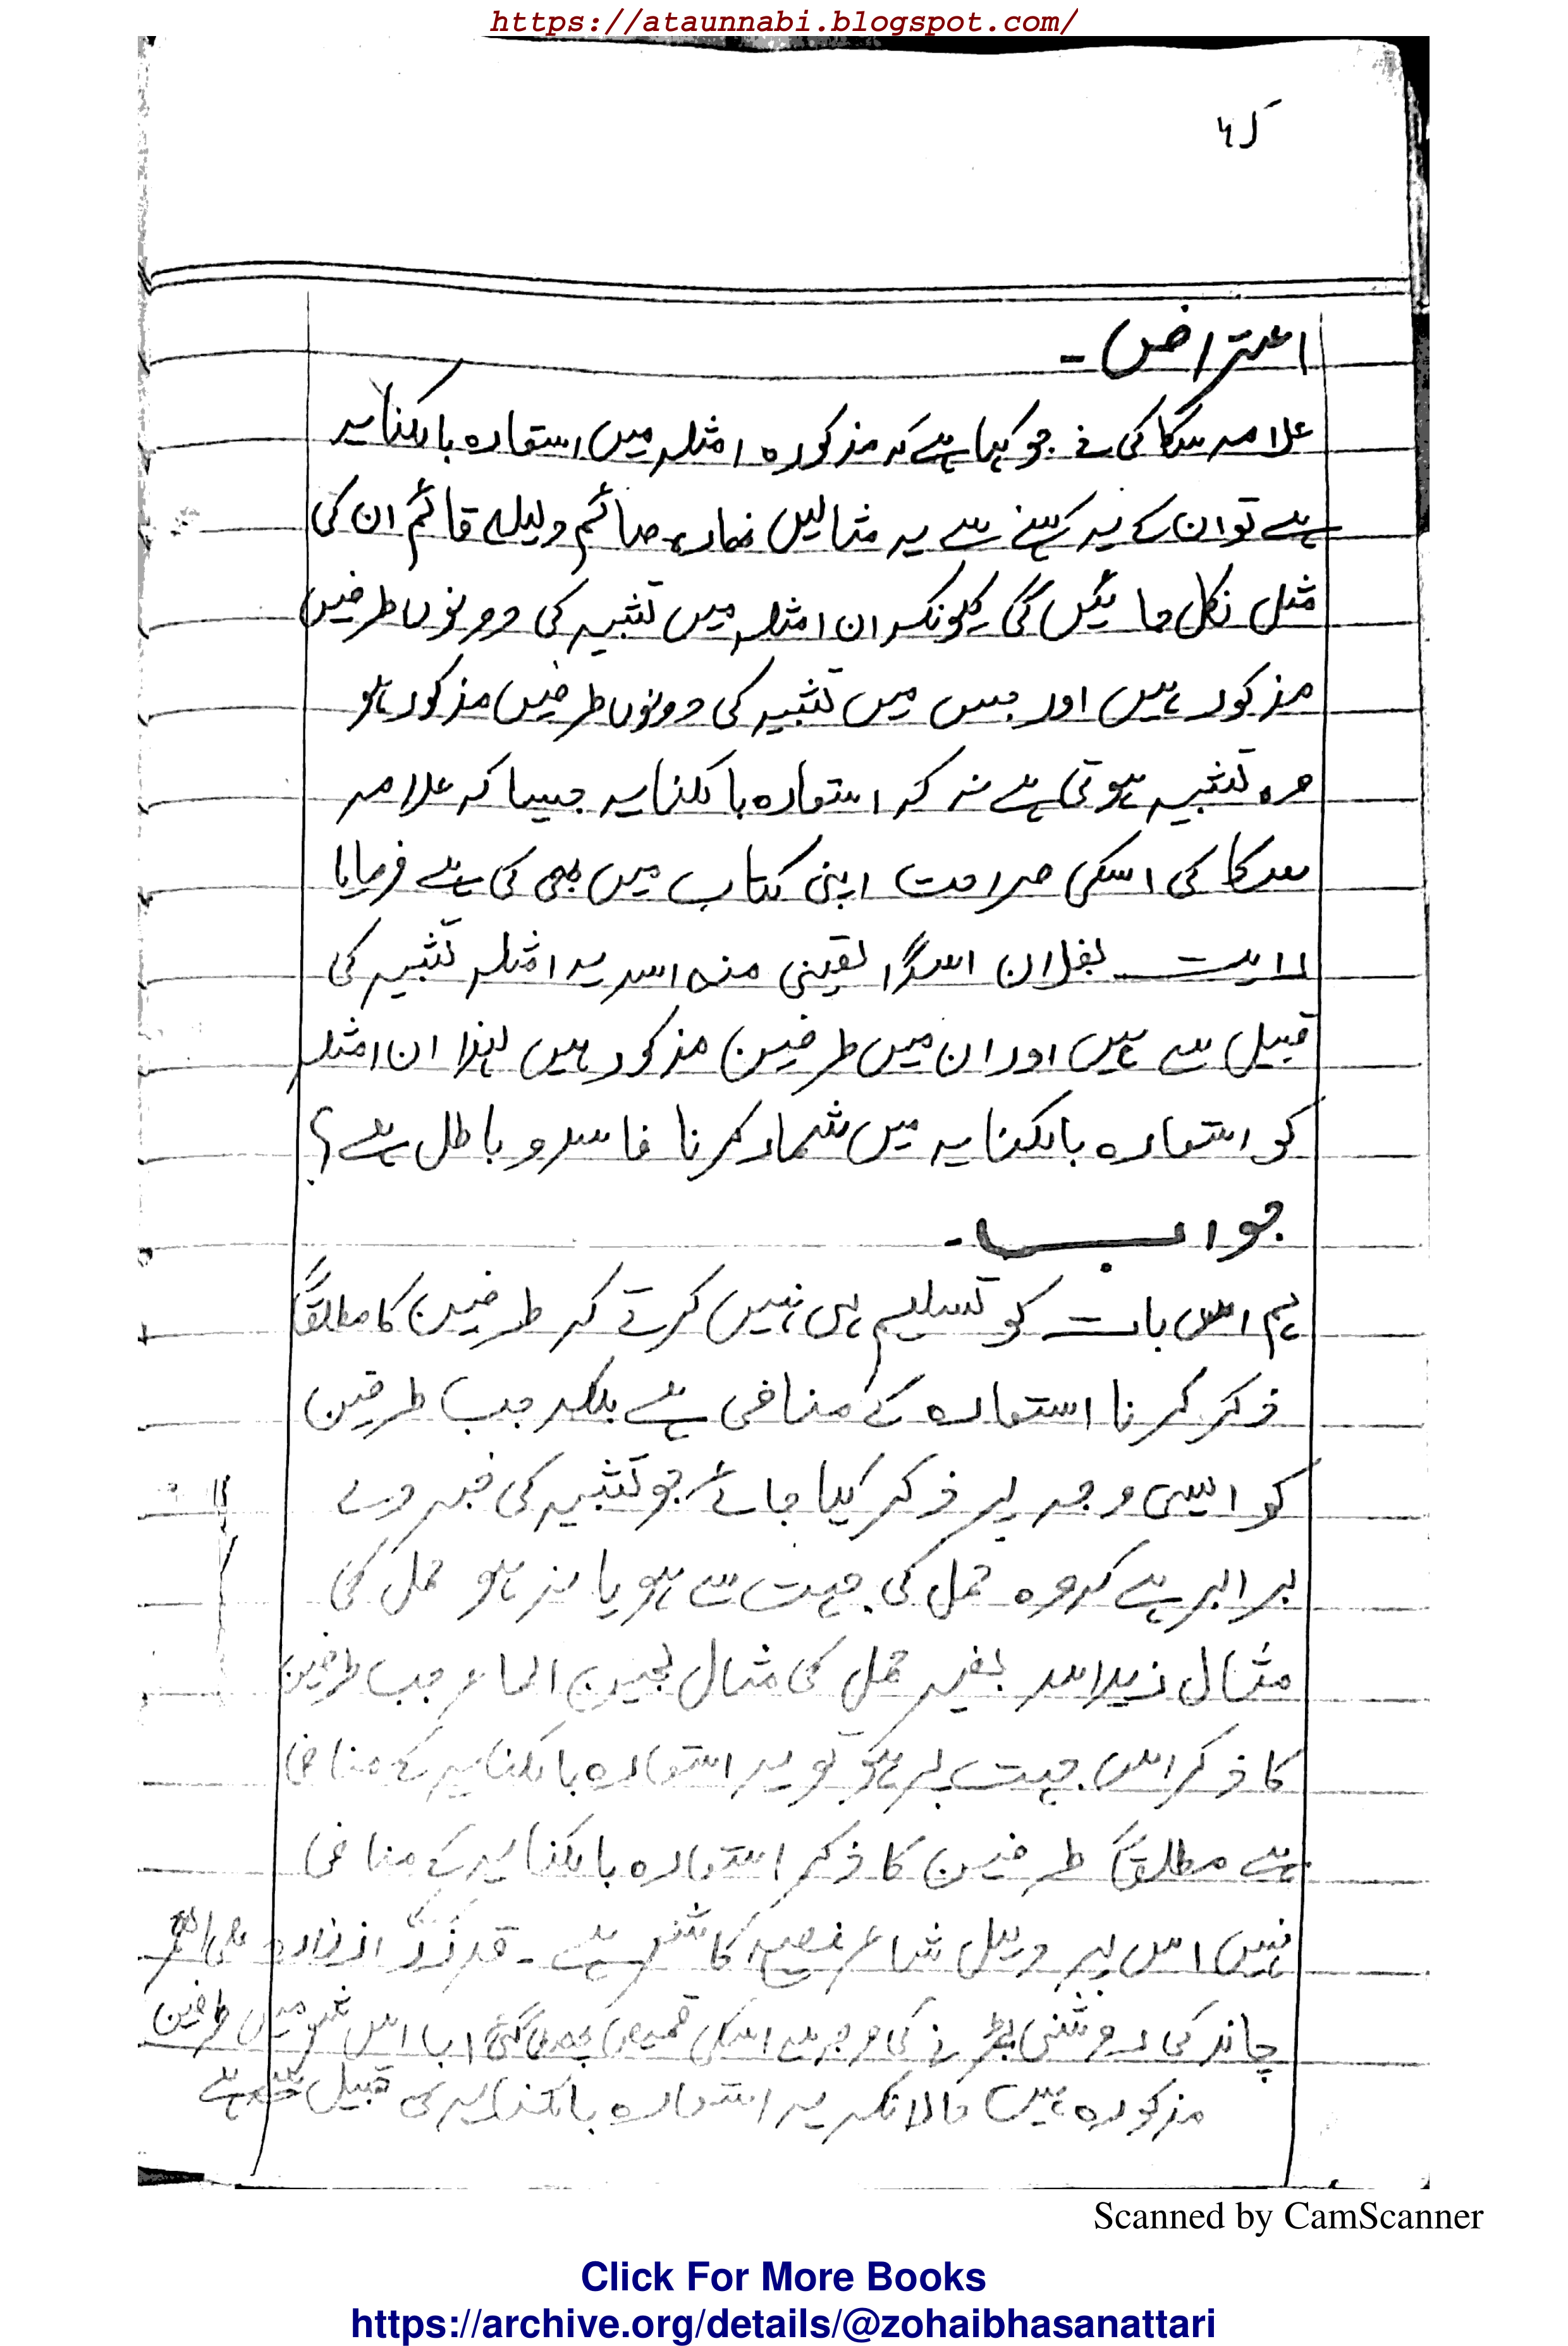 https://ataunnabi.blogspot.com/
اعتراض۔
علامہ سکاکی نے جو کہا ہے کہ مذکورہ امثلہ میں استعارہ بالکنایہ
ہے تو ان کے یہ کہنے سے یہ مثالیں نھارہ صائم و لیلہ قائم ان کی
مثل نکل جائیں گی کیونکہ ان امثلہ میں تشبیہ کی دونوں طرفین
مذکور ہیں اور جس میں تشبیہ کی دونوں طرفیں مذکور ہو
وہ تشبیہ ہوتی ہے نہ کہ استعارہ بالکنایہ جیسا کہ علامہ
سکاکی اسکی صراحت اپنی کتاب میں بھی کی ہے فرمایا
رایت بفلان اسدًا لقینی منہ اسد یہ امثلہ تشبیہ کی
قبیل سے ہیں اور ان میں طرفین مذکور ہیں لہذا ان امثلہ
کو استعارہ بالکنایہ میں شمار کرنا فاسد و باطل ہے؟
جواب۔
ہم اس بات کو تسلیم ہی نہیں کرتے کہ طرفین کا مطلقًا
ذکر کرنا استعارہ کے منافی ہے بلکہ جب طرفین
کو ایسی وجہ پر ذکر کیا جائے جو تشبیہ کی خبر دے
برابر ہے کہ وہ حمل کی جہت سے ہو یا نہ ہو حمل کی
مثال زید اسد بغیر حمل کی مثال لجین الماء جب طرفین
کا ذکر اس جہت پر ہو تو یہ استعارہ بالکنایہ کے منافی
ہے مطلقًا طرفین کا ذکر استعارہ بالکنایہ کے منافی
نہیں اس پر دلیل شاعر کا شعر ہے۔ قد زرّ ازرارہ علی القمر
چاند کی روشنی پڑنے کی وجہ سے اسکی قمیص اب اس شعر میں طرفین
مذکورہ ہیں حالانکہ یہ استعارہ بالکنایہ کی قبیل سے ہے
Scanned by CamScanner
Click For More Books
https://archive.org/details/@zohaibhasanattari